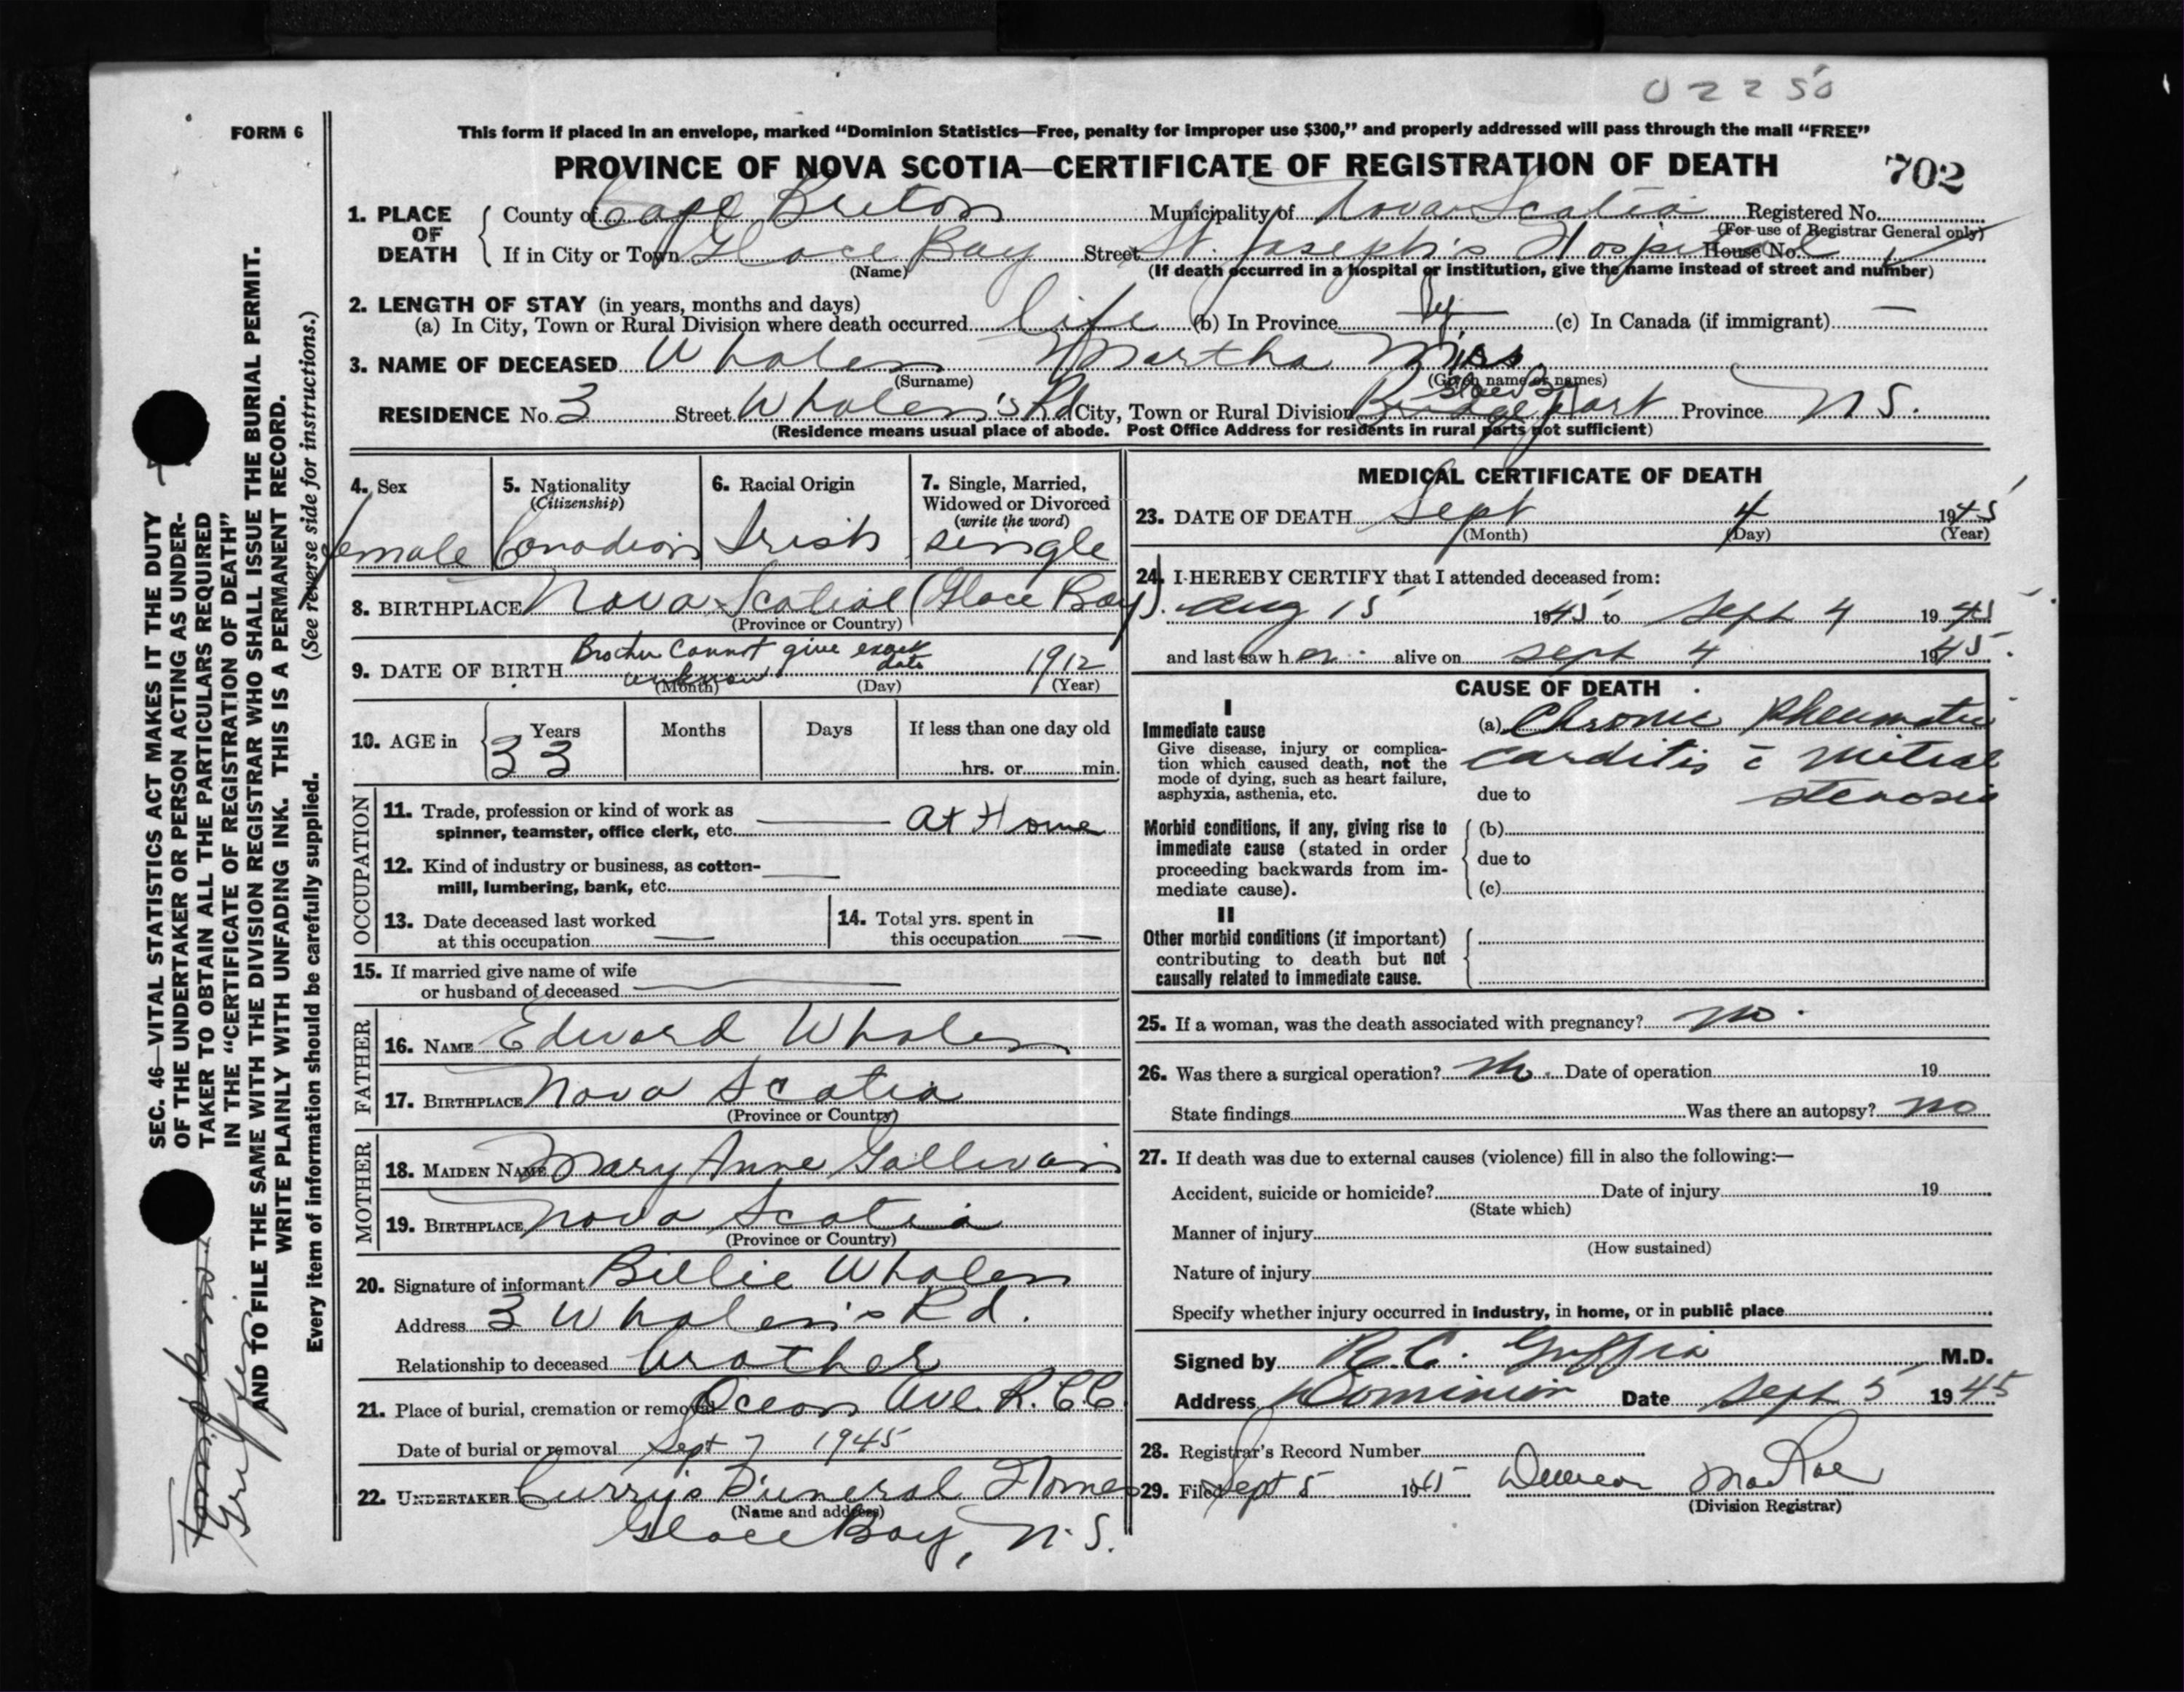 02250
FORM 6
This form if placed in an envelope, marked “Dominion Statistics—Free, penalty for improper use $300,” and properly addressed will pass through the mail “FREE”
PROVINCE OF NOVA SCOTIA—CERTIFICATE OF REGISTRATION OF DEATH 702
1. PLACE OF DEATH
County of Cape Breton Municipality of Nova Scotia Registered No.
(For use of Registrar General only)
If in City or Town Glace Bay Street St. Joseph's Hospital House No.
(Name) (If death occurred in a hospital or institution, give the name instead of street and number)
2. LENGTH OF STAY (in years, months and days)
(a) In City, Town or Rural Division where death occurred life (b) In Province (c) In Canada (if immigrant) —
3. NAME OF DECEASED Whalen Martha Miss
(Surname) (Given name or names)
RESIDENCE No. 3 Street Whalen's Rd City, Town or Rural Division Bridgeport Province N S.
(Residence means usual place of abode. Post Office Address for residents in rural parts not sufficient)
4. Sex
female
5. Nationality
(Citizenship)
Canadian
6. Racial Origin
Irish
7. Single, Married,
Widowed or Divorced
(write the word)
single
8. BIRTHPLACE Nova Scotia (Glace Bay)
(Province or Country)
9. DATE OF BIRTH Brother Cannot give exact date
unknown 1912
(Month) (Day) (Year)
10. AGE in Years Months Days If less than one day old
33 hrs. or min.
OCCUPATION
11. Trade, profession or kind of work as
spinner, teamster, office clerk, etc. — At Home
12. Kind of industry or business, as cotton-
mill, lumbering, bank, etc. —
13. Date deceased last worked
at this occupation —
14. Total yrs. spent in
this occupation —
15. If married give name of wife
or husband of deceased —
FATHER
16. NAME Edward Whalen
17. BIRTHPLACE Nova Scotia
(Province or Country)
MOTHER
18. MAIDEN NAME Mary Anne Gallivan
19. BIRTHPLACE Nova Scotia
(Province or Country)
20. Signature of informant Billie Whalen
Address 3 Whalen's Rd.
Relationship to deceased brother
21. Place of burial, cremation or removal Ocean Ave. R.C.C
Date of burial or removal Sept 7 1945
22. UNDERTAKER Curry's Funeral Home
(Name and address)
Glace Bay, N.S.
MEDICAL CERTIFICATE OF DEATH
23. DATE OF DEATH Sept 4 1945
(Month) (Day) (Year)
24. I HEREBY CERTIFY that I attended deceased from:
Aug 15 1945 to Sept 4 1945
and last saw her alive on Sept 4 1945.
CAUSE OF DEATH
I
Immediate cause
Give disease, injury or complica-
tion which caused death, not the
mode of dying, such as heart failure,
asphyxia, asthenia, etc.
(a) Chronic Rheumatic
carditis c̄ mitral
due to stenosis
Morbid conditions, if any, giving rise to
immediate cause (stated in order
proceeding backwards from im-
mediate cause).
(b)
due to
(c)
II
Other morbid conditions (if important)
contributing to death but not
causally related to immediate cause.
25. If a woman, was the death associated with pregnancy? no.
26. Was there a surgical operation? no. Date of operation 19
State findings Was there an autopsy? no
27. If death was due to external causes (violence) fill in also the following:—
Accident, suicide or homicide? Date of injury 19
(State which)
Manner of injury
(How sustained)
Nature of injury
Specify whether injury occurred in industry, in home, or in public place
Signed by R.C. Griffin M.D.
Address Dominion Date Sept 5 1945
28. Registrar's Record Number
29. Filed Sept 5 1945 Duncan MacRae
(Division Registrar)
SEC. 46—VITAL STATISTICS ACT MAKES IT THE DUTY
OF THE UNDERTAKER OR PERSON ACTING AS UNDER-
TAKER TO OBTAIN ALL THE PARTICULARS REQUIRED
IN THE “CERTIFICATE OF REGISTRATION OF DEATH”
AND TO FILE THE SAME WITH THE DIVISION REGISTRAR WHO SHALL ISSUE THE BURIAL PERMIT.
WRITE PLAINLY WITH UNFADING INK. THIS IS A PERMANENT RECORD.
(See reverse side for instructions.)
Every item of information should be carefully supplied.
Tompkins